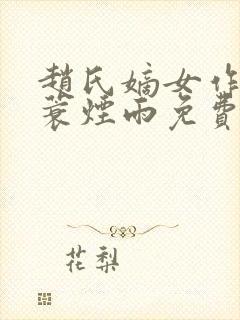 趙氏嫡女作
蓑煙雨免費
花梨